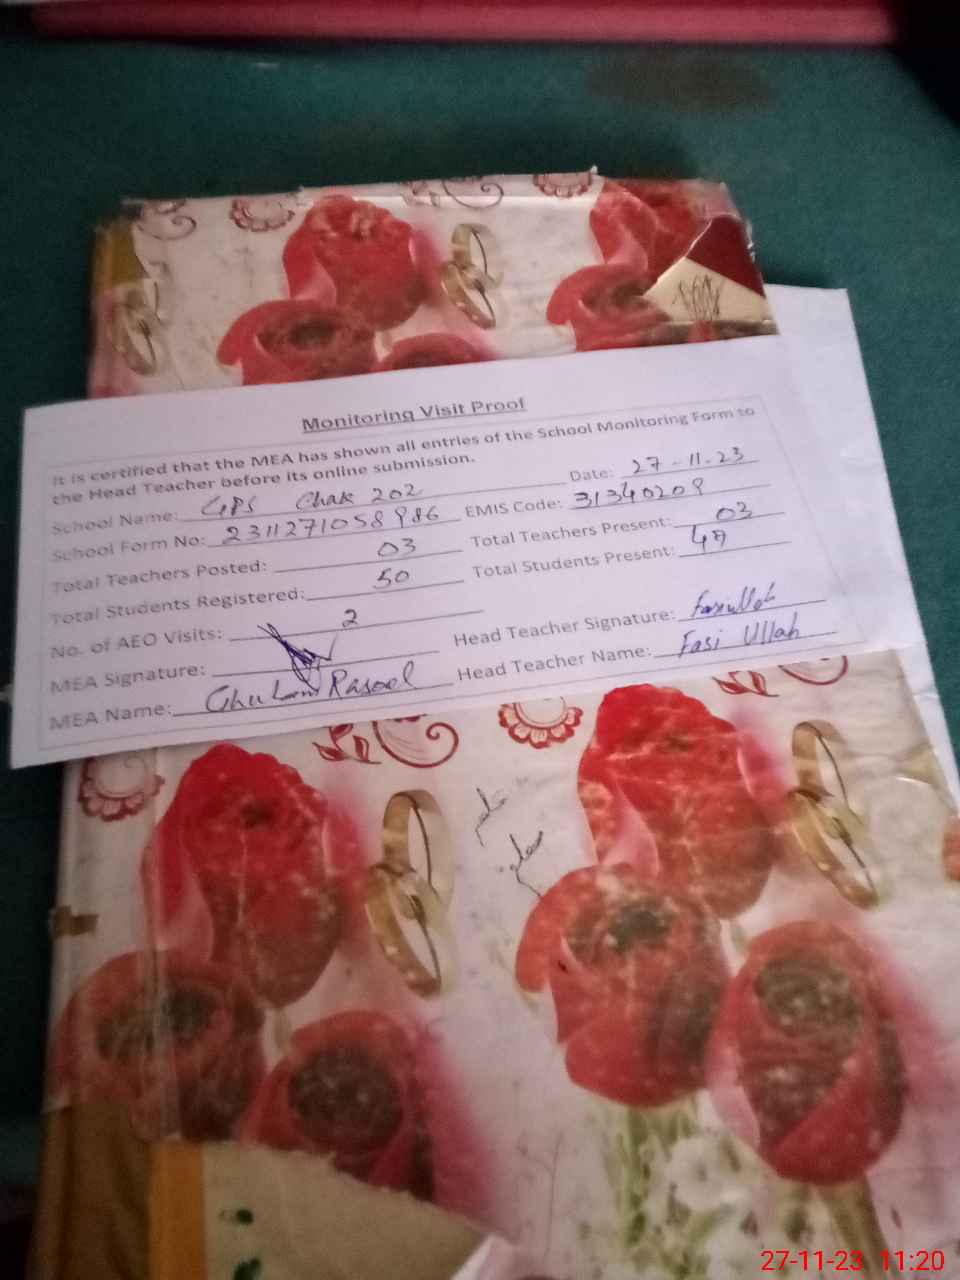 Monitoring Visit Proof
It is certified that the MEA has shown all entries of the School Monitoring Form to
the Head Teacher before its online submission.
School Name: GPS Chak 202 Date: 27-11-23
School Form No: 2311271058986 EMIS Code: 31340209
Total Teachers Posted: 03 Total Teachers Present: 03
Total Students Registered: 50 Total Students Present: 47
No. of AEO Visits: 2
MEA Signature: Head Teacher Signature: Fasiullah
MEA Name: Ghulam Rasool Head Teacher Name: Fasi Ullah
27-11-23 11:20